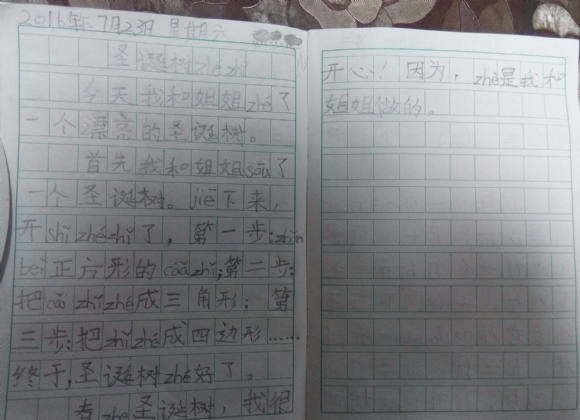 2016年7月23日 星期六
圣诞树zhé zhǐ
今天我和姐姐zhé了
一个漂亮的圣诞树。
首先我和姐姐sōu了
一个圣诞树。jiē下来,
开shǐ zhé zhǐ了,第一步:zhǔn
bèi正方形的cǎi zhǐ;第二步:
把cǎi zhǐ zhé成三角形;第
三步:把zhǐ zhé成四边形……
终于,圣诞树zhé好了。
看zhe圣诞树,我很
开心!因为,zhè是我和
姐姐做的。